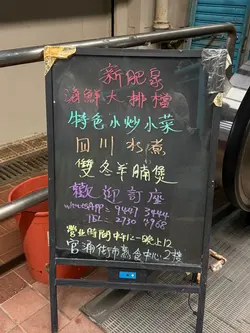 新肥泉
海鮮大排檔
特色小炒小菜
四川水煮
雙冬羊腩煲
歡迎訂座
WhatsApp: 9447 3444
TEL: 2730 4968
營業時間 中午12–晚上12
官涌街市熟食中心2樓